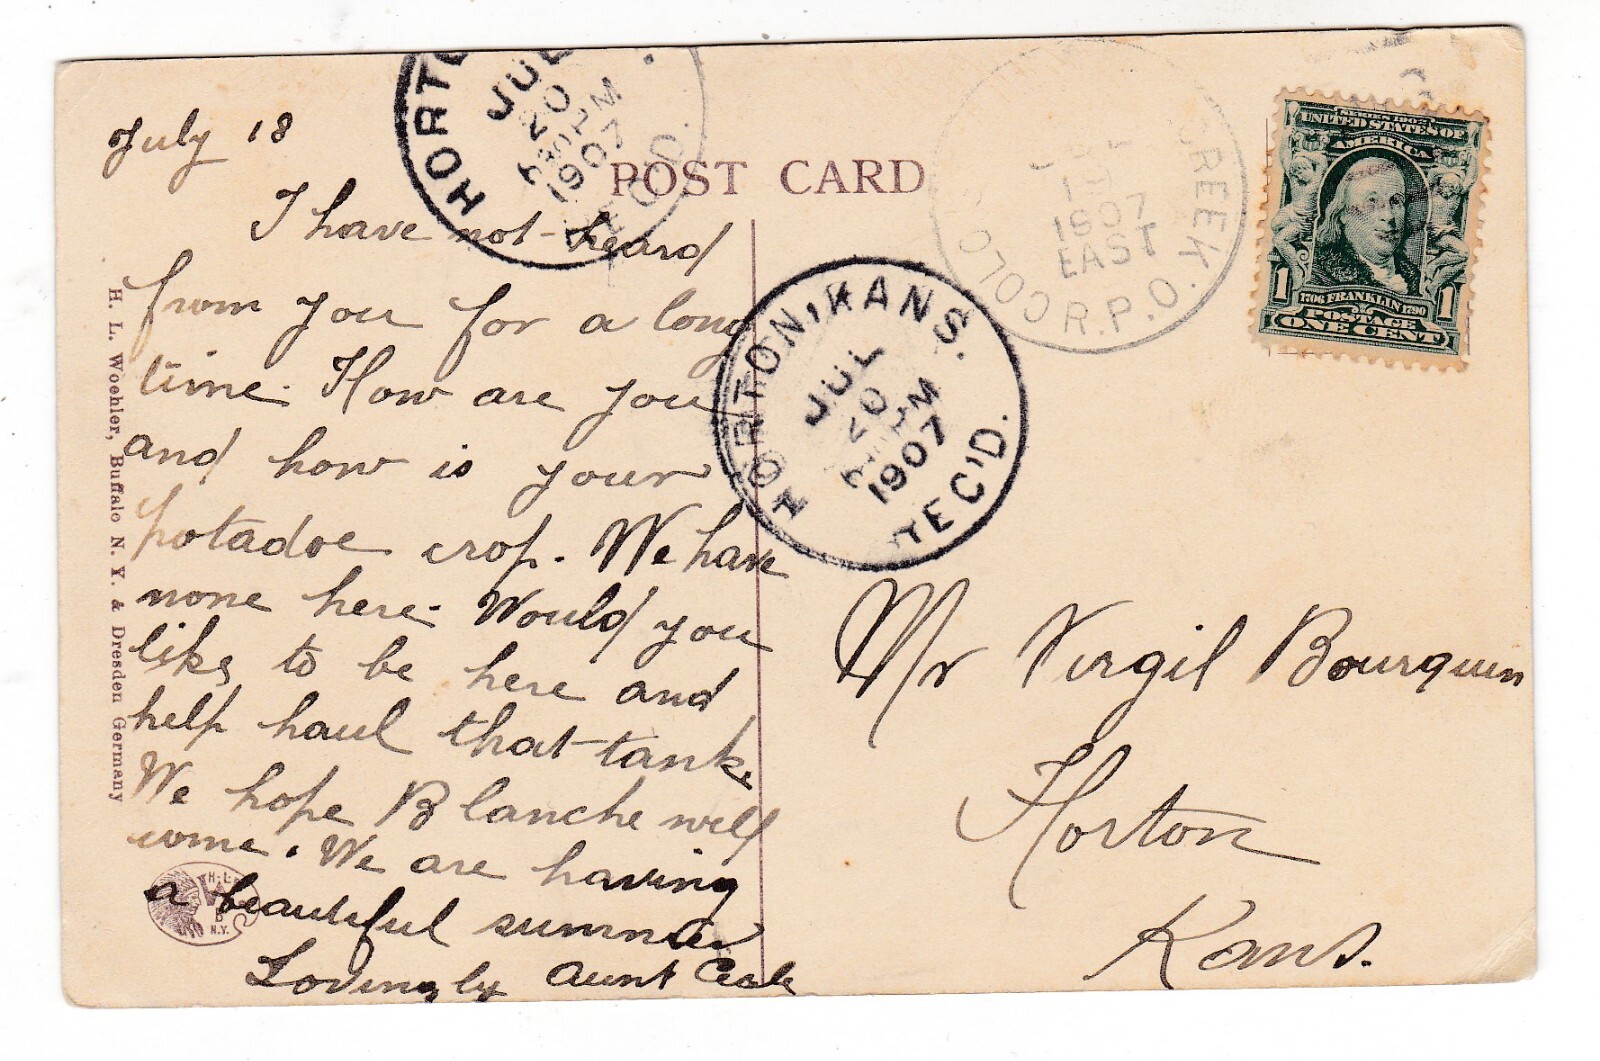 POST CARD
July 18
I have not heard
from you for a long
time. How are you
and how is your
potadoe crop. We have
none here. Would you
like to be here and
help haul that tank.
We hope Blanche will
come. We are having
a beautiful summer
Lovingly Aunt
Mr Virgil Bourquin
Horton
Kans.
H. L. Woehler, Buffalo N. Y. & Dresden Germany
H. L.
B
N.Y.
HORTON
JUL
20
1907
REC'D.
HORTON, KANS.
JUL
20
1907
REC'D.
CREEK
COLO
R.P.O.
JUL
1907
EAST
SERIES 1902
UNITED STATES OF
AMERICA
1706 FRANKLIN 1790
1 1
POSTAGE
ONE CENT